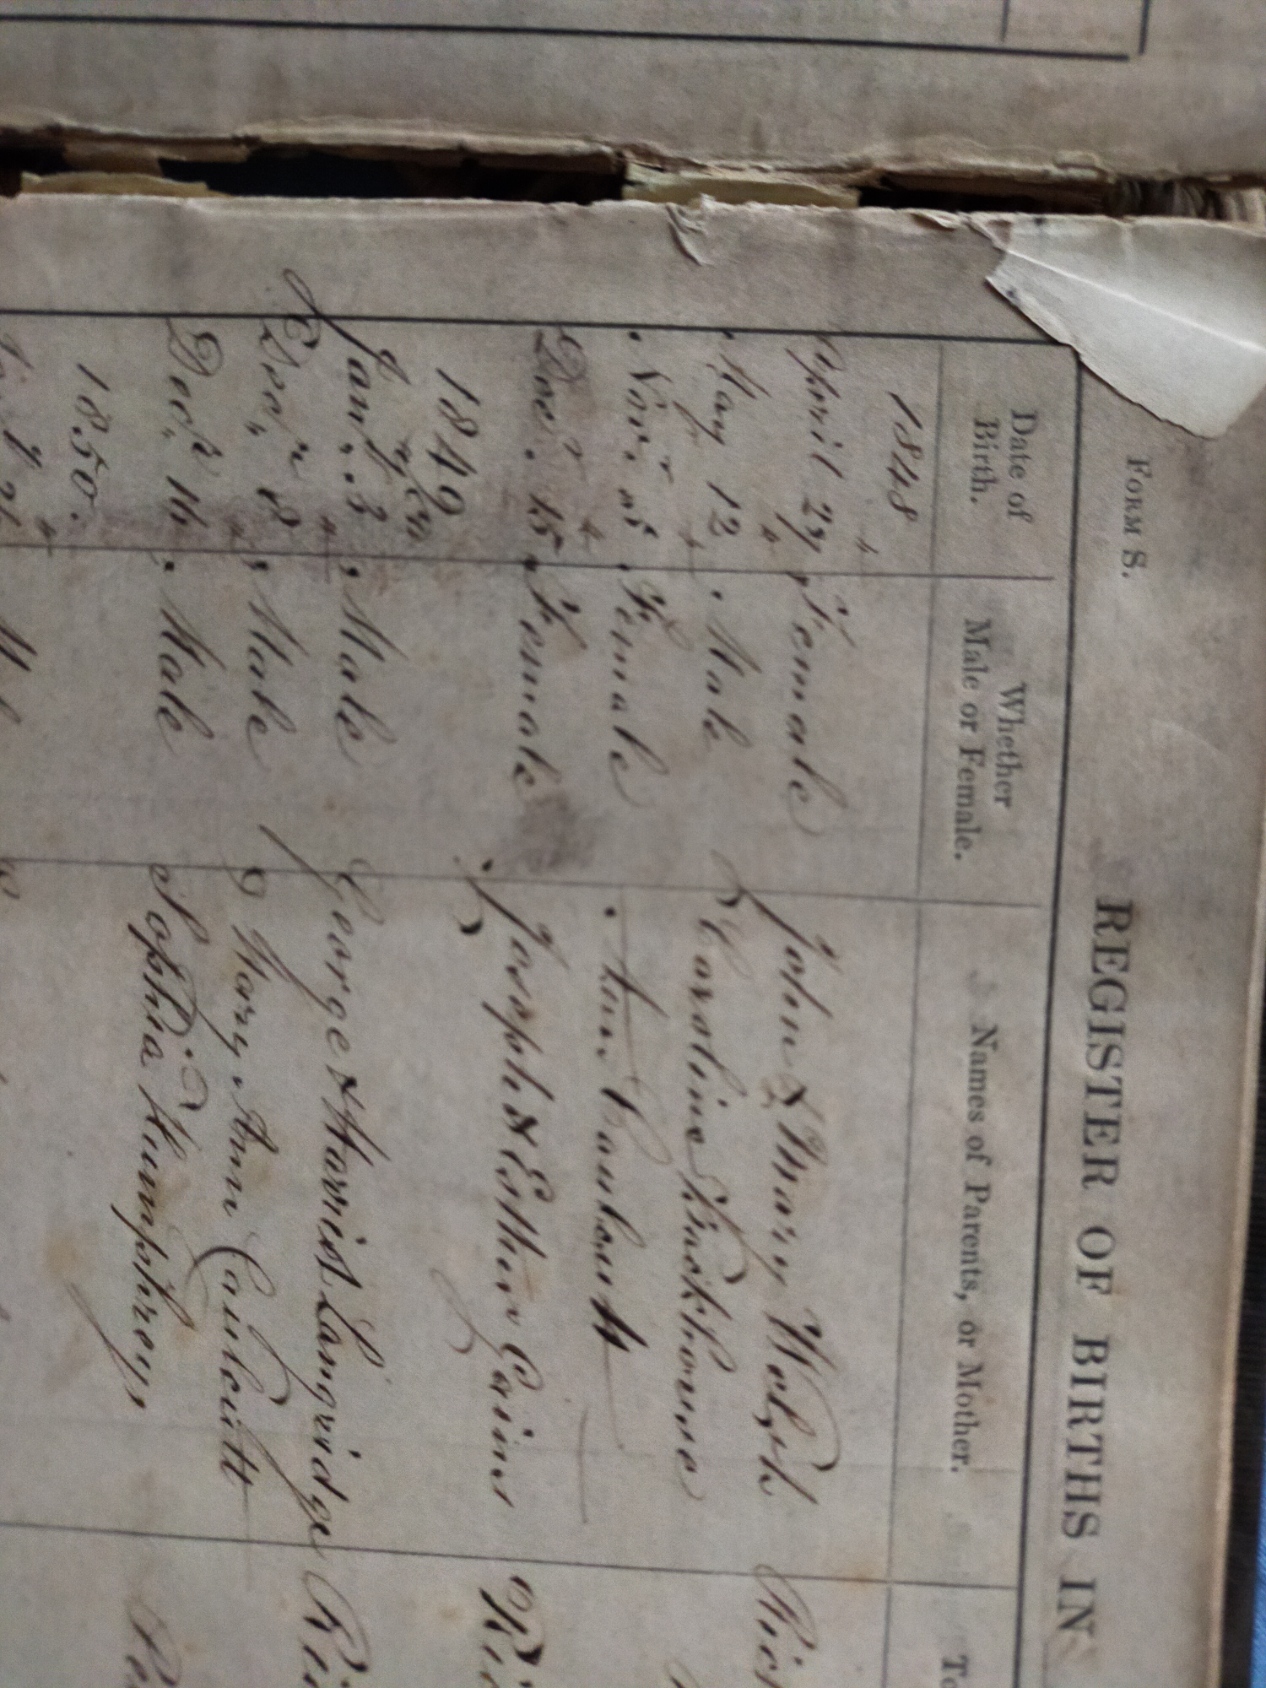 FORM S.
REGISTER OF BIRTHS IN
Date of Birth. Whether Male or Female. Names of Parents, or Mother. To
1848
April 27 Female John & Mary Welsh
May 12 Male Caroline Stackhouse
Nov.r 25 Female Ann
Dec.r 15 Female Joseph & Esther Cains
1849
Jan.ry 3 Male George & Harriet Langridge
Dec.r 8 Male Mary Ann Caulcutt
Dec.r 16 Male Sophia Humphreys
1850.